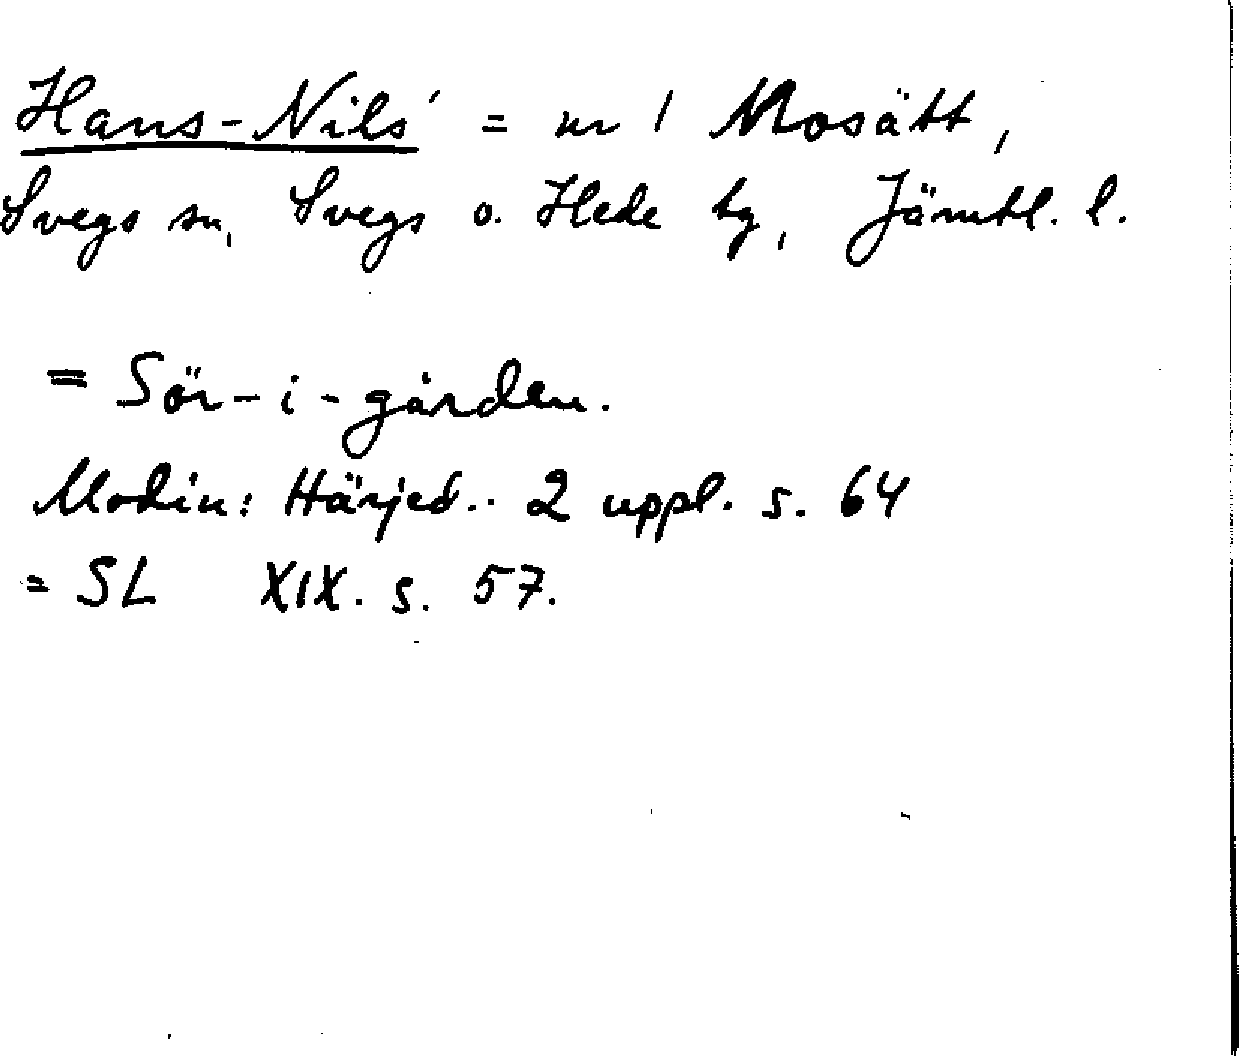 Hans-Nils' = nr 1 Mosätt,
Svegs sn, Svegs o. Hede tg, Jämtl. l.
= Sör-i-gården.
Modin: Härjed.. 2 uppl. s. 64
= SL XIX. s. 57.